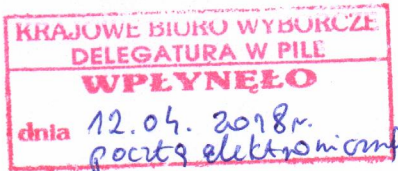 KRAJOWE BIURO WYBORCZE
DELEGATURA W PILE
WPŁYNĘŁO
dnia 12.04.2018r.
pocztą elektroniczną